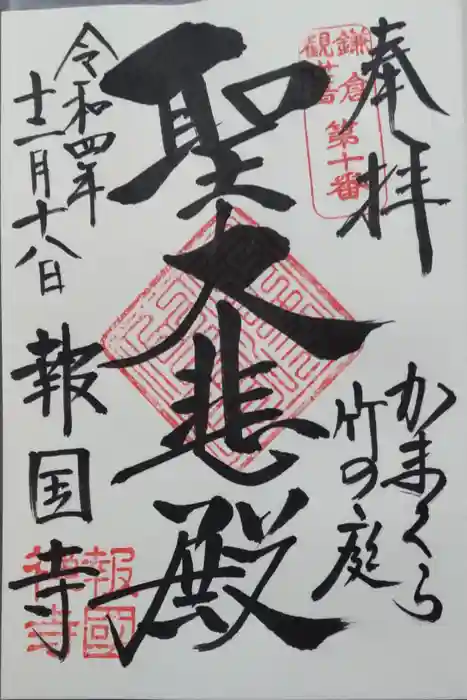 奉拝
鎌倉
観音
第十番
かまくら
竹の庭
聖大悲殿
令和四年
十二月十八日
報国寺
報國
禅寺